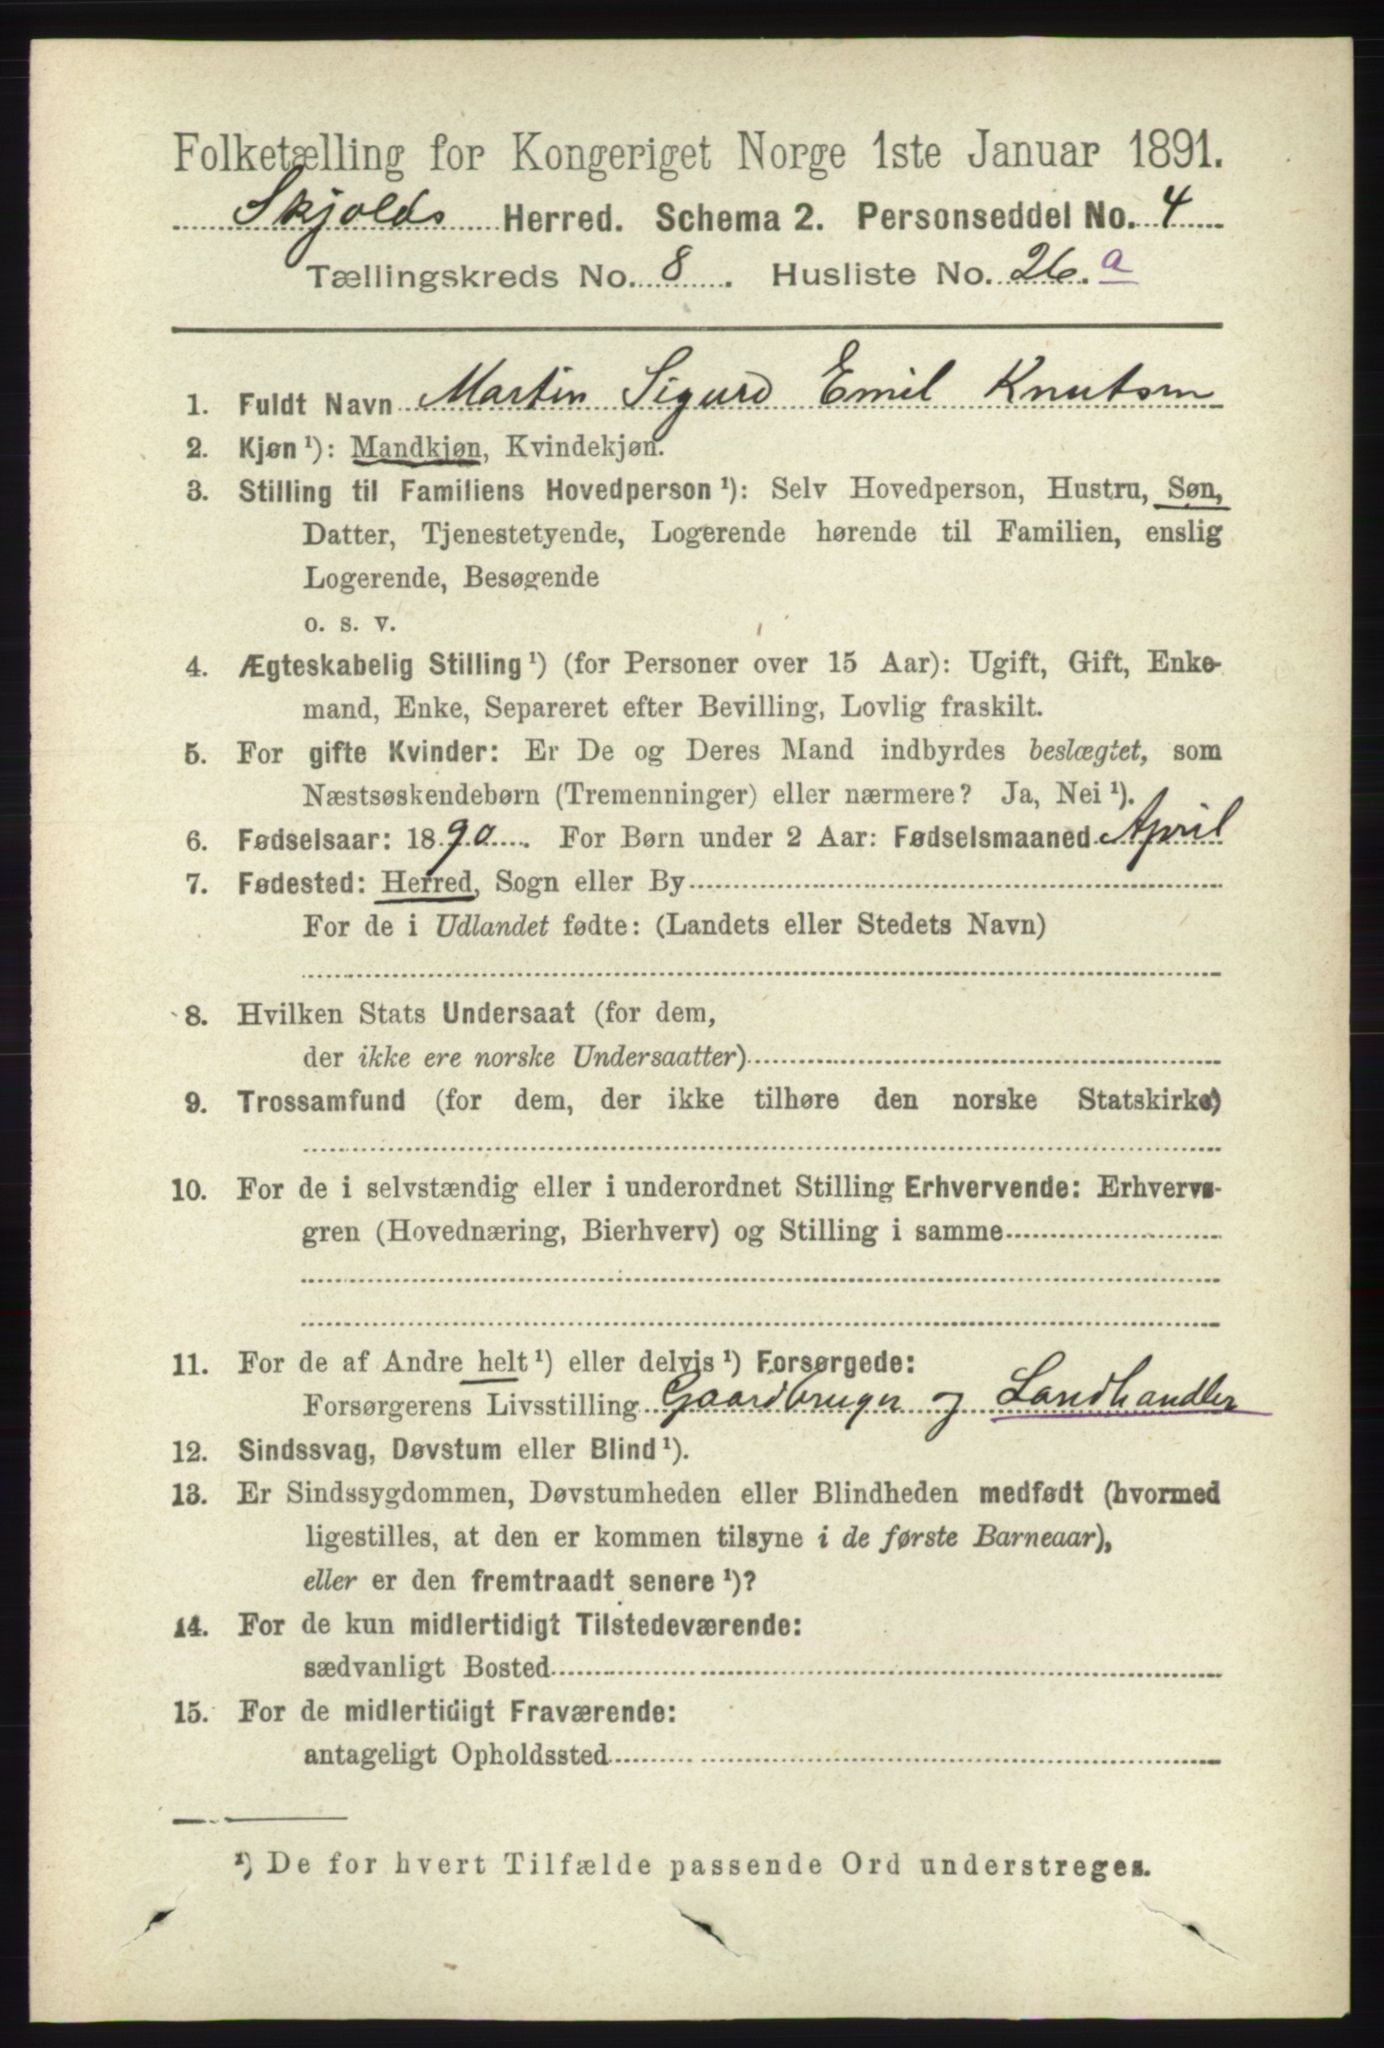 Folketælling for Kongeriget Norge 1ste Januar 1891.
Skjolds Herred. Schema 2. Personseddel No. 4
Tællingskreds No. 8. Husliste No. 26.a
1. Fuldt Navn Martin Sigurd Emil Knutsen
2. Kjøn ¹): Mandkjøn, Kvindekjøn.
3. Stilling til Familiens Hovedperson ¹): Selv Hovedperson, Hustru, Søn,
Datter, Tjenestetyende, Logerende hørende til Familien, enslig
Logerende, Besøgende
o. s. v.
4. Ægteskabelig Stilling ¹) (for Personer over 15 Aar): Ugift, Gift, Enke-
mand, Enke, Separeret efter Bevilling, Lovlig fraskilt.
5. For gifte Kvinder: Er De og Deres Mand indbyrdes beslægtet, som
Næstsøskendebørn (Tremenninger) eller nærmere? Ja, Nei ¹).
6. Fødselsaar: 1890. For Børn under 2 Aar: Fødselsmaaned April
7. Fødested: Herred, Sogn eller By
For de i Udlandet fødte: (Landets eller Stedets Navn)
8. Hvilken Stats Undersaat (for dem,
der ikke ere norske Undersaatter)
9. Trossamfund (for dem, der ikke tilhøre den norske Statskirke)
10. For de i selvstændig eller i underordnet Stilling Erhvervende: Erhvervs-
gren (Hovednæring, Bierhverv) og Stilling i samme
11. For de af Andre helt ¹) eller delvis ¹) Forsørgede:
Forsørgerens Livsstilling Gaardbruger og Landhandler
12. Sindssvag, Døvstum eller Blind ¹).
13. Er Sindssygdommen, Døvstumheden eller Blindheden medfødt (hvormed
ligestilles, at den er kommen tilsyne i de første Barneaar),
eller er den fremtraadt senere ¹)?
14. For de kun midlertidigt Tilstedeværende:
sædvanligt Bosted
15. For de midlertidigt Fraværende:
antageligt Opholdssted
¹) De for hvert Tilfælde passende Ord understreges.